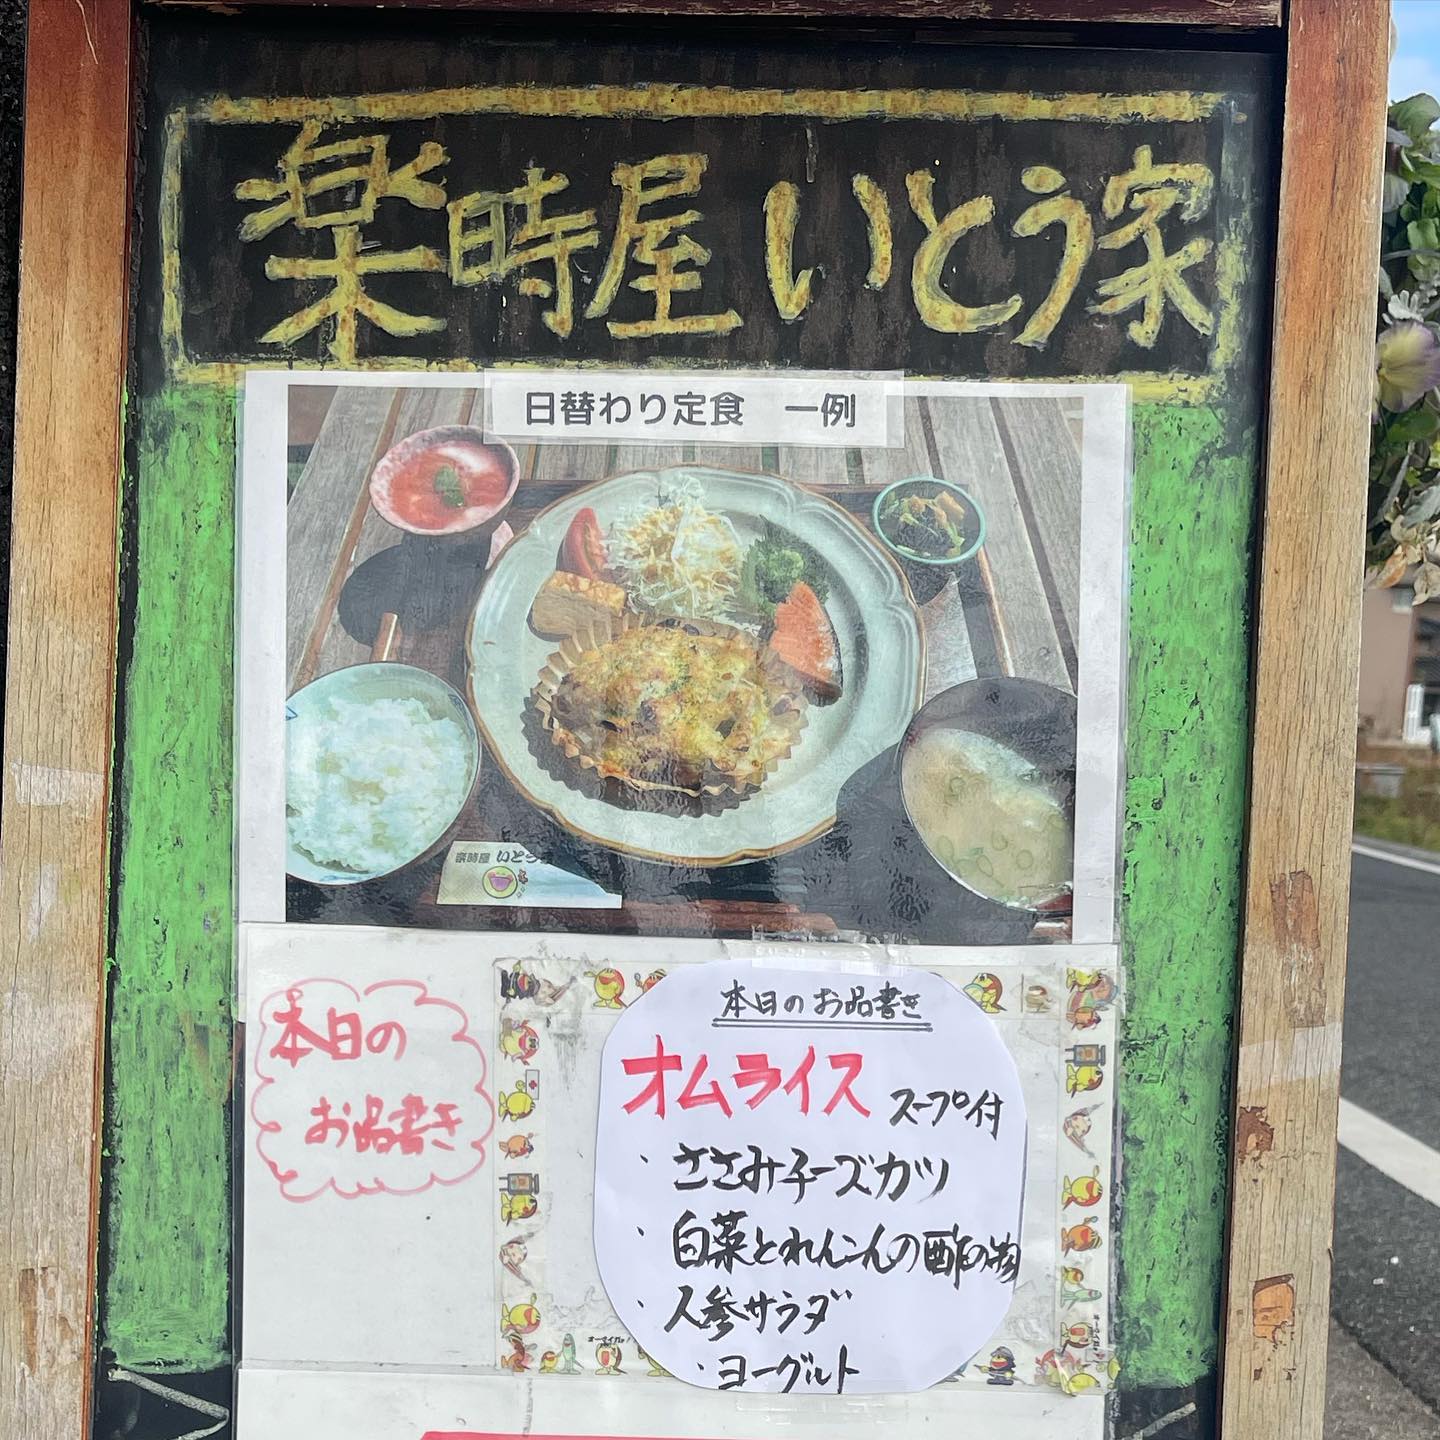 楽時屋 いとう家
日替わり定食 一例
楽時屋 いとう
本日の
お品書き
本日のお品書き
オムライス スープ付
・ささみチーズカツ
・白菜とれんこんの酢の物
・人参サラダ
・ヨーグルト